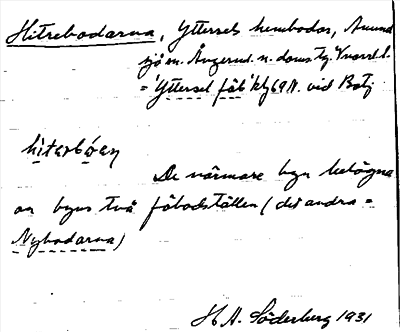 Hitrebodarna, Yttersels hembodar, Anund
sjö sn. Ångerml. n. doms.
= 'Yttersel fäb' kbl 69 A. vid Betj
hìterbóen
De närmare byn belägna
av byns två fäbodställen (det andra =
Nybodarna)
H. A. Söderberg 1931